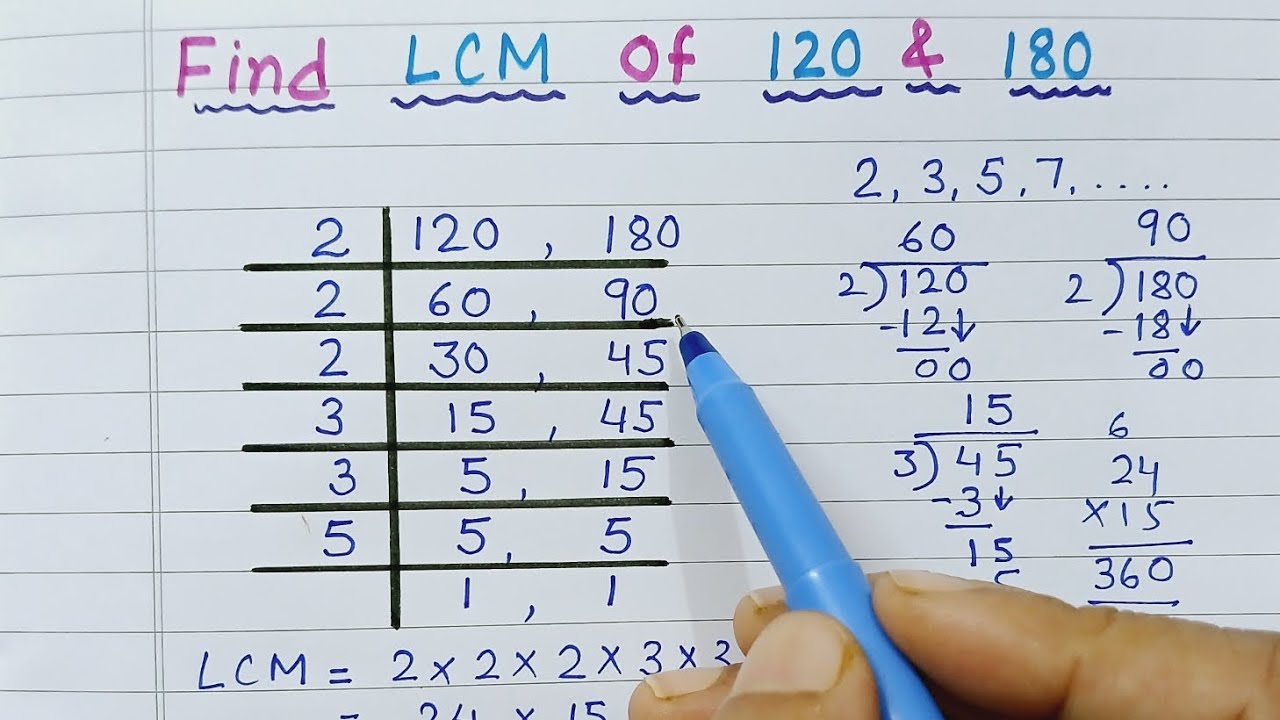 Find LCM of 120 & 180
2, 3, 5, 7, .....
2 | 120 , 180
2 | 60 , 90
2 | 30 , 45
3 | 15 , 45
3 | 5 , 15
5 | 5 , 5
1 , 1
60
2)120
-12↓
00
90
2)180
-18↓
00
15
3)45
-3↓
15
6
24
×15
360
LCM = 2 × 2 × 2 × 3 × 3
= 24 × 15